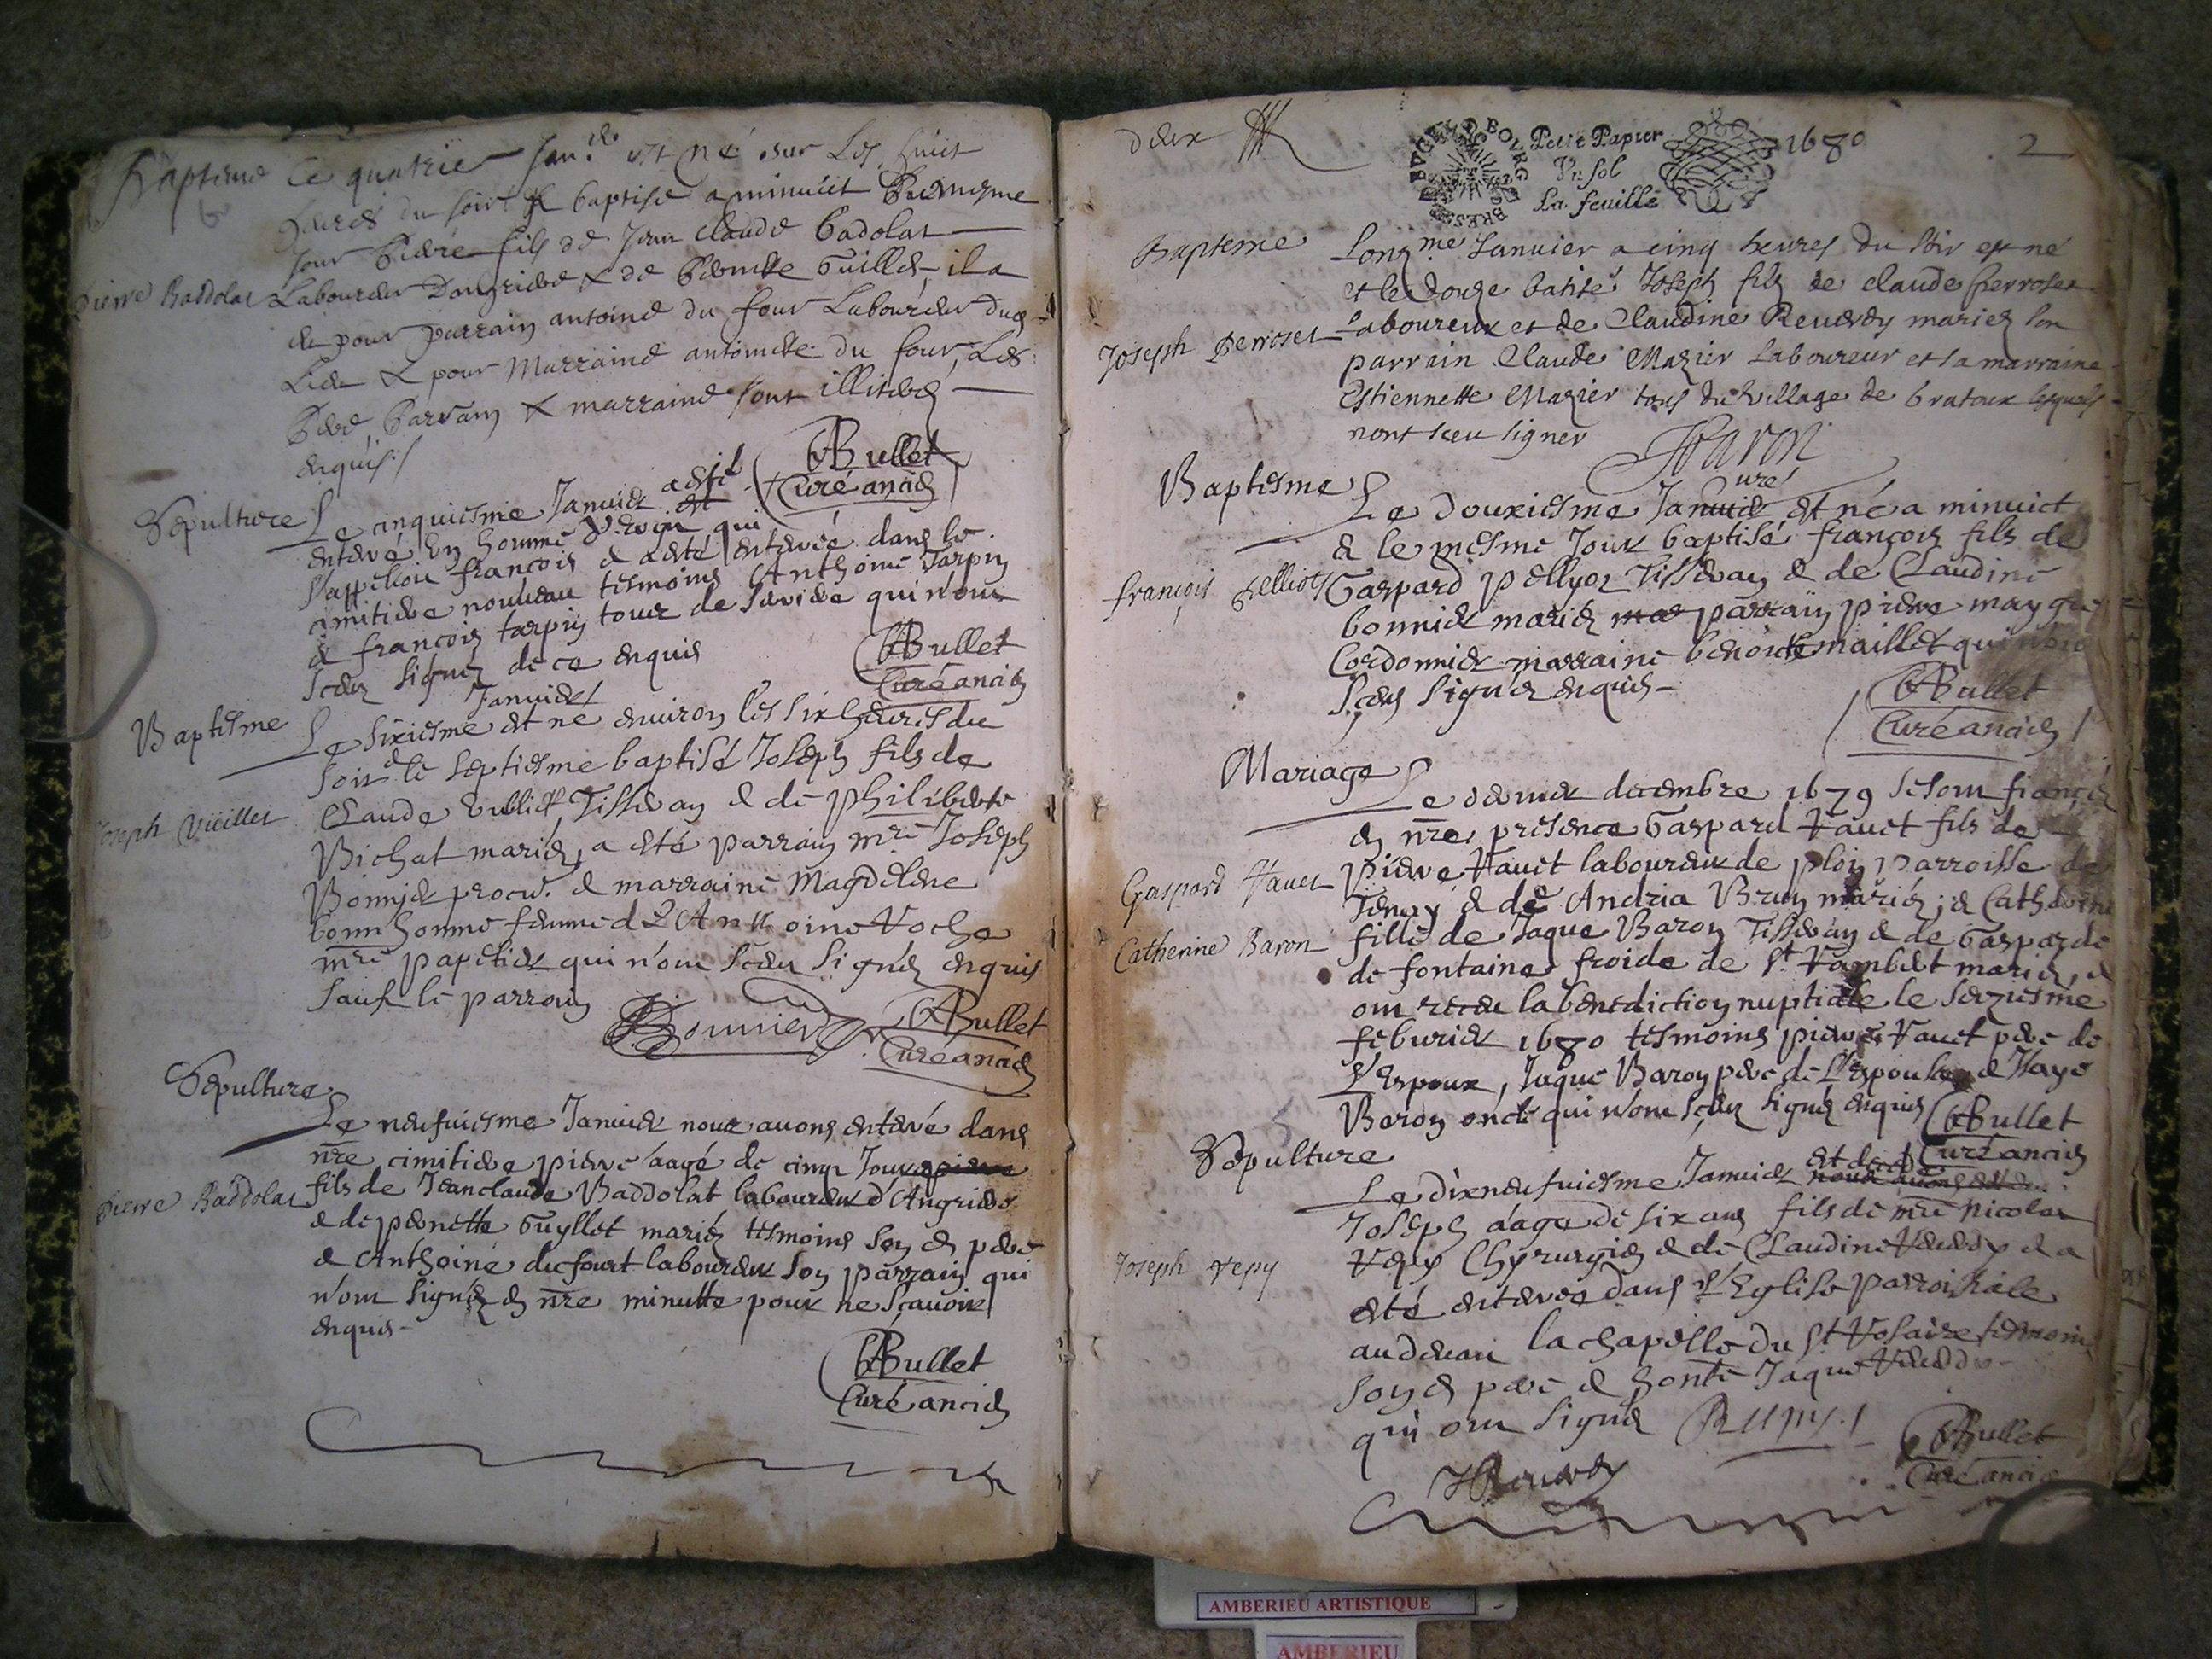 Baptême Ce quatrie Janu. est né sur Les huict
heures du soir & baptisé a minuict
Jour Pierre fils de Jean Claude Badolat
Pierre Baddolat Laboureur Dangrieres & de Pernette Guillet, il a
eu pour parrain antoine du four Laboureur dud.
Lieu & pour Marraine antoinette du four, Les
Pere Parrain & marraine sont illiterez
enquis /
ABullet
Curé ancien
Sepulture Le cinquiesme Januier a esté
enterré un homme qui
s'appelloit francois & a esté enterré dans le
cimitiere nouveau tesmoins Anthoine Tarpin
& francois tarpin tous de qui n'ont
sceu signer de ce enquis
ABullet
Curé ancien
Januier
Baptesme Le sixiesme est né environ les six heures du
soir & le septiesme baptisé Joseph fils de
Joseph Vüillet Claude Tisseran & de Philiberte
Bichat mariez, a esté parrain mre Joseph
Bonnier procur. & marraine Magdelene
bonnhomme femme de Anthoine Vocha
mre papetier qui n'ont sceu signer enquis
sauf le parrain
Bonnier
ABullet
Curé ancien
Sepulture
Le neufuiesme Januier nous avons enterré dans
nre cimitiere pierre aagé de cinq Jours pierre
Pierre Baddolat fils de Jeanclaude Baddolat laboureur d'Angriere
& de pernette Guyllet mariez tesmoins son d. pere
& Anthoine dufour laboureur son parrain qui
n'ont signéz en nre minutte pour ne scavoir
enquis
ABullet
Curé ancien
deux
Petit Papier
Vn sol
La feuille
1680
2
Bapteme Lonzme Januier a cinq heures du soir est né
et le douze batisé Joseph fils de claude perroset
Joseph Perroset Laboureur et de Claudine Reverdy mariez son
parrain Claude Mazier Laboureur et sa marraine
Estiennette Mazier tous du village de bratoux lesquels
nont sceu signer
Baron
Curé
Baptesme Le douziesme Januier est né a minuict
& le mesme Jour baptisé françois fils de
françois pelliot Gaspard pellyoz Tisseran & de Claudine
bonnier mariez parrain pierre
Cordonnier marraine benoicte maillet qui n'ont
sceu signer enquis
ABullet
Curé ancien
Mariage Le dernier decembre 1679 se sont fiancez
en nre presence Gaspard Vauet fils de
Gaspard Vauet pierre Vauet laboureur de ploin parroisse de
Tenay & de Andria Brun mariez, & Catherine
Catherine Baron fille de Jaque Baron Tisseran & de Gasparde
de fontaine froide de St Rambert mariez, &
ont receu la benediction nuptiale le seziesme
feburier 1680 tesmoins pierre Vauet pere de
l'Espoux, Jaque Baron pere de l'Espouse &
Baron oncle qui n'ont sceu signer enquis
ABullet
Curé ancien
Sepulture
Le dixneufuiesme Januier est decedé
Joseph aagé de six ans fils de mre Nicolas
Joseph repy Repy Chyrurgien & de Claudine Reverdy & a
esté enterré dans l'Eglise parroissiale
au devant la chapelle du St Rosaire tesmoins
son d. pere & honte Jaque Reverdy
qui ont signez Repy
ABullet
Curé ancien
JReverdy
AMBERIEU ARTISTIQUE
AMBERIEU